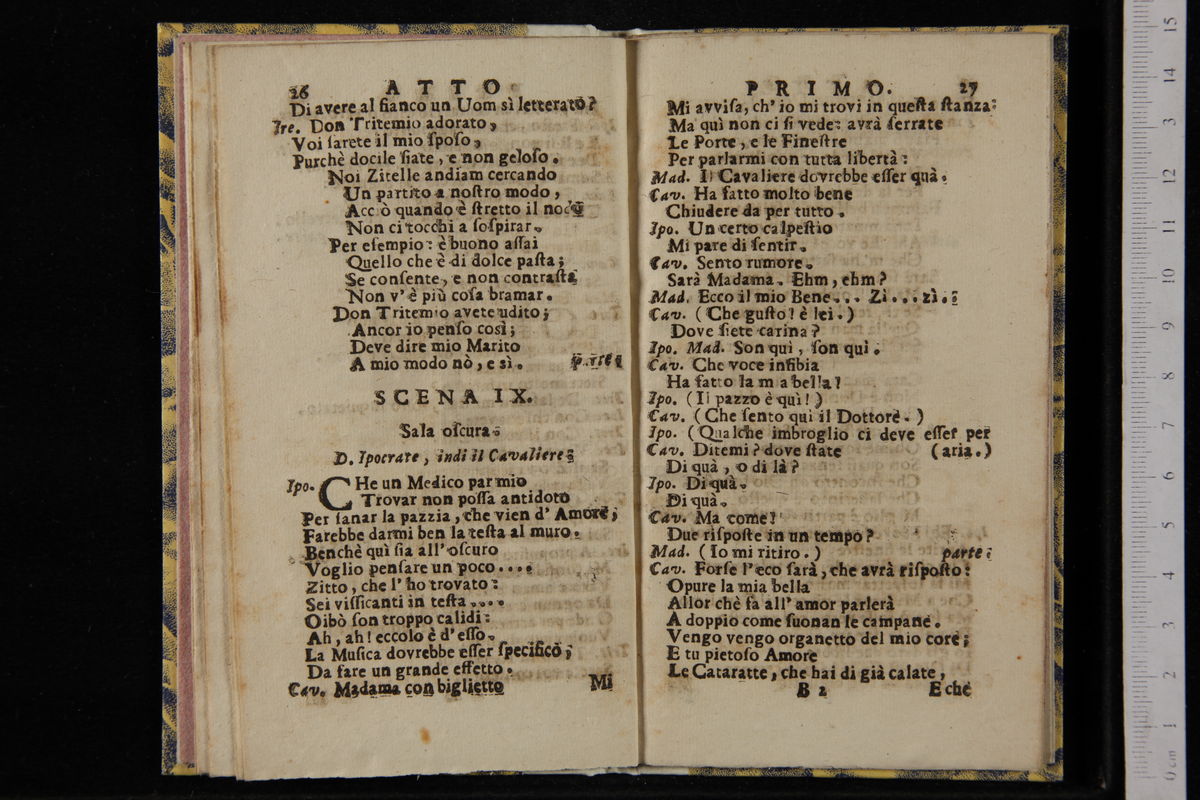 26 ATTO
Di avere al fianco un Uom sì letterato?
Ire. Don Tritemio adorato,
Voi sarete il mio sposo,
Purchè docile siate, e non geloso.
Noi Zitelle andiam cercando
Un partito a nostro modo,
Acc ò quando è stretto il nodo
Non ci tocchi a sospirar.
Per esempio: è buono assai
Quello che è di dolce pasta;
Se consente, e non contrasta
Non v'è più cosa bramar.
Don Tritemio avete udito;
Ancor io penso così;
Deve dire mio Marito
A mio modo nò, e sì. parte
SCENA IX.
Sala oscura.
D. Ipocrate, indi il Cavaliere.
Ipo. CHe un Medico par mio
Trovar non possa antidoto
Per sanar la pazzia, che vien d'Amore,
Farebbe darmi ben la testa al muro.
Benchè quì sia all'oscuro
Voglio pensare un poco....
Zitto, che l'ho trovato:
Sei vissicanti in testa....
Oibò son troppo calidi:
Ah, ah! eccolo è d'esso.
La Musica dovrebbe esser specifico,
Da fare un grande effetto.
Cav. Madama con biglietto
Mi
PRIMO. 27
Mi avvisa, ch'io mi trovi in questa stanza:
Ma quì non ci si vede: avrà serrate
Le Porte, e le Finestre
Per parlarmi con tutta libertà:
Mad. Il Cavaliere dovrebbe esser quà.
Cav. Ha fatto molto bene
Chiudere da per tutto.
Ipo. Un certo calpestio
Mi pare di sentir.
Cav. Sento rumore.
Sarà Madama. Ehm, ehm?
Mad. Ecco il mio Bene... Zì...zì..
Cav. (Che gusto! è lei.)
Dove siete carina?
Ipo. Mad. Son quì, son quì.
Cav. Che voce insibia
Ha fatto la m a bella!
Ipo. (Il pazzo è quì!)
Cav. (Che sento quì il Dottore.)
Ipo. (Qualche imbroglio ci deve esser per
Cav. Ditemi? dove state (aria.)
Di quà, o di là?
Ipo. Di quà.
Di quà.
Cav. Ma come?
Due risposte in un tempo?
Mad. (Io mi ritiro.) parte.
Cav. Forse l'eco sarà, che avrà risposto:
Opure la mia bella
Allor chè fa all'amor parlerà
A doppio come suonan le campane.
Vengo vengo organetto del mio core;
E tu pietoso Amore
Le Cataratte, che hai di già calate,
B 2 E che